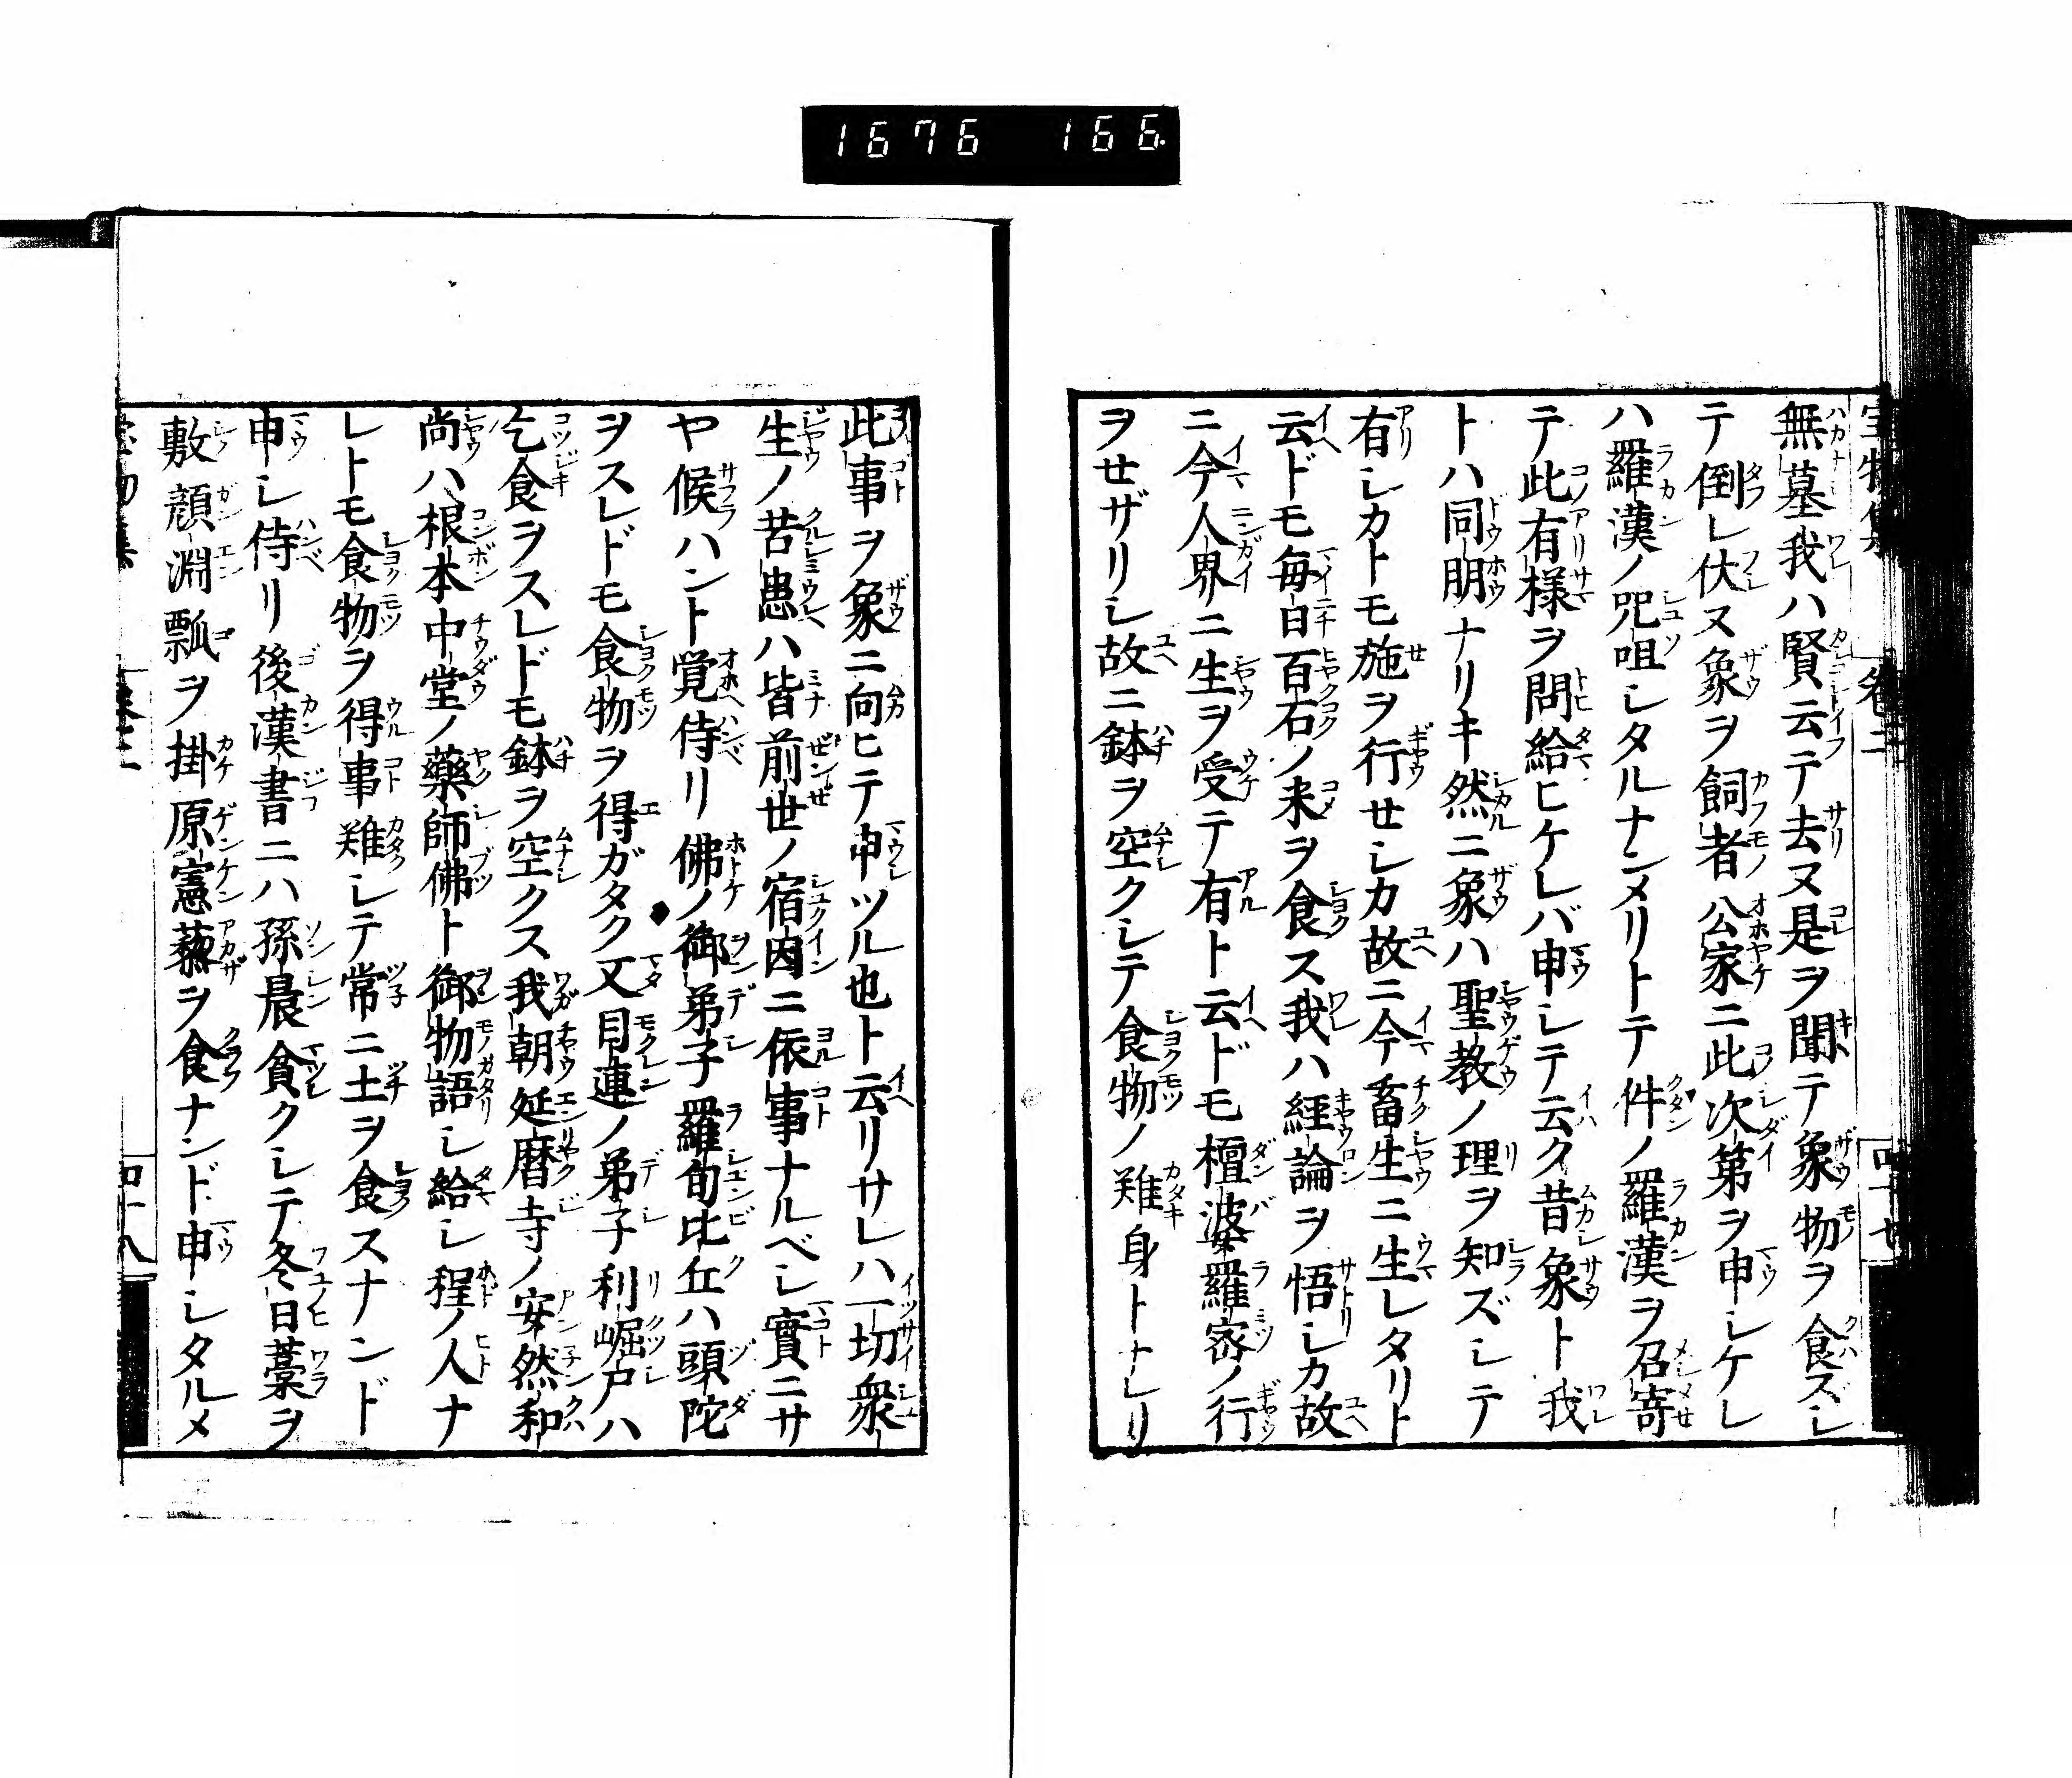 1676 166
無墓我ハ賢云テ去ヌ是ヲ聞テ象物ヲ食ズシ
テ倒レ伏ヌ象ヲ飼者公家ニ此次第ヲ申シケレ
ハ羅漢ノ咒咀シタルナンメリトテ件ノ羅漢ヲ召寄
テ此有様ヲ問給ヒケレバ申シテ云ク昔象ト我
トハ同朋ナリキ然ニ象ハ聖教ノ理ヲ知ズシテ
有シカトモ施ヲ行せシカ故ニ今畜生ニ生レタリト
云ドモ毎日百石ノ米ヲ食ス我ハ経論ヲ悟シカ故
ニ今人界ニ生ヲ受テ有ト云ドモ檀波羅密ノ行
ヲせザリシ故ニ鉢ヲ空クシテ食物ノ難身トナレリ
此事ヲ象ニ向ヒテ申ツル也ト云リサレハ一切衆
生ノ苦患ハ皆前世ノ宿因ニ依事ナルベシ實ニサ
ヤ候ハント覚侍リ佛ノ御弟子羅旬比丘ハ頭陀
ヲスレドモ食物ヲ得ガタク又目連ノ弟子利崛尸ハ
乞食ヲスレドモ鉢ヲ空クス我朝延暦寺ノ安然和
尚ハ根本中堂ノ藥師佛ト御物語シ給シ程ノ人ナ
レトモ食物ヲ得事難シテ常ニ土ヲ食スナンド
申シ侍リ後漢書ニハ孫晨貧クシテ冬日藁ヲ
敷顔淵瓢ヲ掛原憲藜ヲ食ナンド申シタルメ